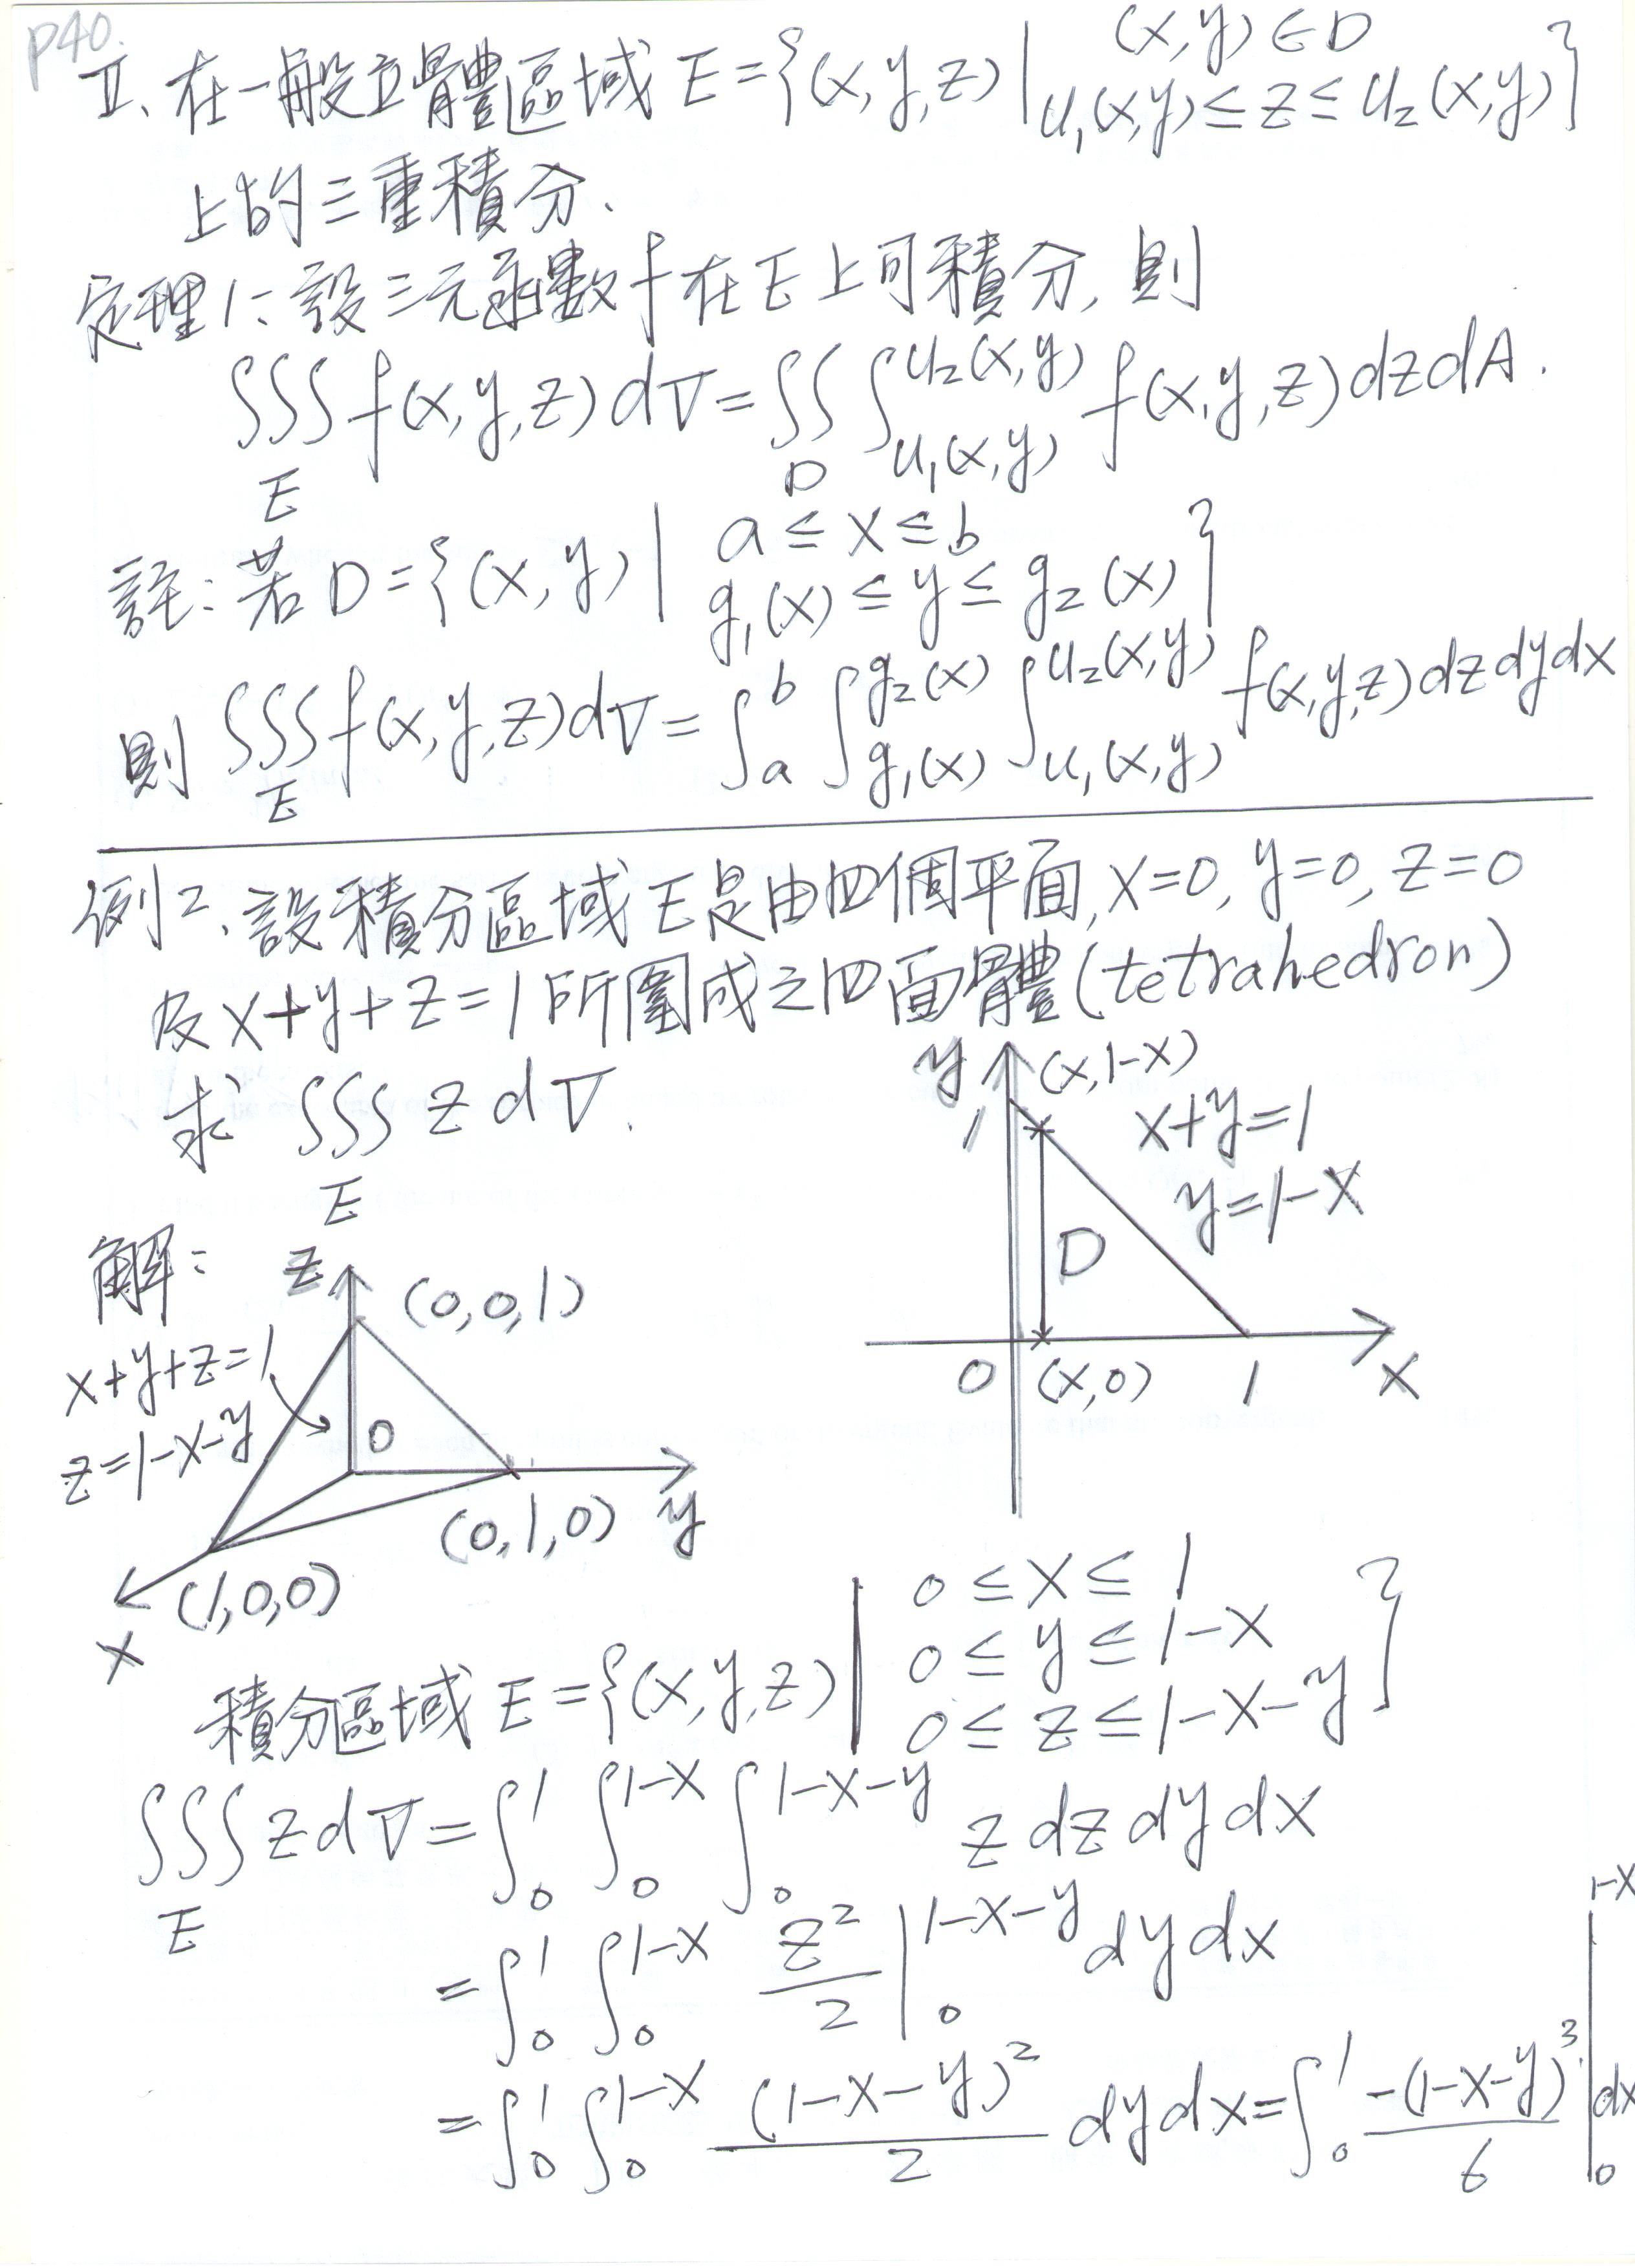 P40.
II、在一般立體區域 E={(x,y,z) | (x,y)∈D
u₁(x,y)≤z≤u₂(x,y)}
上的三重積分.
定理1: 設三元函數f在E上可積分, 則
∫∫∫_E f(x,y,z)dV=∫∫_D ∫_{u₁(x,y)}^{u₂(x,y)} f(x,y,z)dzdA.
註: 若D={(x,y) | a≤x≤b
g₁(x)≤y≤g₂(x)}
則 ∫∫∫_E f(x,y,z)dV=∫_a^b ∫_{g₁(x)}^{g₂(x)} ∫_{u₁(x,y)}^{u₂(x,y)} f(x,y,z)dzdydx
例2、設積分區域E是由四個平面, x=0, y=0, z=0
及x+y+z=1所圍成之四面體(tetrahedron)
求 ∫∫∫_E z dV.
y
(x,1-x)
1
x+y=1
y=1-x
D
0
(x,0)
1
x
解:
z
(0,0,1)
x+y+z=1
z=1-x-y
0
(0,1,0)
y
(1,0,0)
x
積分區域 E={(x,y,z) | 0≤x≤1
0≤y≤1-x
0≤z≤1-x-y}
∫∫∫_E zdV=∫_0^1 ∫_0^{1-x} ∫_0^{1-x-y} z dz dy dx
=∫_0^1 ∫_0^{1-x} z²/2 |_0^{1-x-y} dy dx
=∫_0^1 ∫_0^{1-x} (1-x-y)²/2 dy dx=∫_0^1 -(1-x-y)³/6 |_0^{1-x} dx